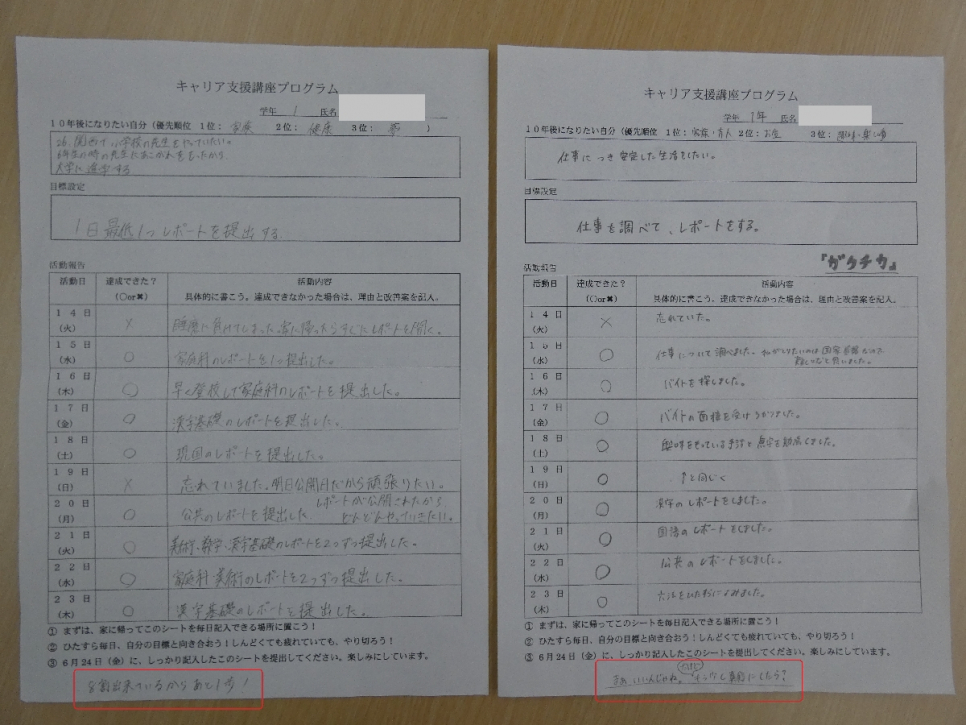 キャリア支援講座プログラム
学年 1 氏名
10年後になりたい自分（優先順位 1位： 家庭 2位： 健康 3位： ）
26. 関西で小学校の先生をやっていたい。
6年生の時の先生にあこがれをもったから
大学に進学する
目標設定
1日最低1つレポートを提出する
活動報告
活動日 達成できた？ （○or✖） 活動内容 具体的に書こう。達成できなかった場合は、理由と改善案を記入。
14日（火） × 睡魔に負けてしまった。家に帰ったらすぐにレポートを開く。
15日（水） ○ 家庭科のレポートを1つ提出した。
16日（木） ○ 早く登校して家庭科のレポートを提出した。
17日（金） ○ 漢字基礎のレポートを提出した。
18日（土） ○ 現国のレポートを提出した。
19日（日） × 忘れていました。明日公開日だから頑張りたい。
20日（月） ○ 公共のレポートを提出した。 レポートが公開されたから どんどんやっていきたい。
21日（火） ○ 美術、数学、漢字基礎のレポートを2つずつ提出した。
22日（水） ○ 家庭科 美術のレポートを2つずつ提出した。
23日（木） ○ 漢字基礎のレポートを提出した。
① まずは、家に帰ってこのシートを毎日記入できる場所に置こう！
② ひたすら毎日、自分の目標と向き合おう！しんどくても疲れていても、やり切ろう！
③ 6月24日（金）に、しっかり記入したこのシートを提出してください。楽しみにしています。
出来ているから あと1歩！
キャリア支援講座プログラム
学年 1年 氏名
10年後になりたい自分（優先順位 1位： 家族・友人 2位： お金 3位： 趣味・楽しい事
仕事につき安定した生活をしたい。
目標設定
仕事を調べて、レポートをする。
『ガクチカ』
活動報告
活動日 達成できた？ （○or✖） 活動内容 具体的に書こう。達成できなかった場合は、理由と改善案を記入。
14日（火） × 忘れていた。
15日（水） ○ 仕事について調べました。
16日（木） ○ バイトを探しました。
17日（金） ○ バイトの面接を受け うかりました。
18日（土） ○ 興味をもっている手話と点字を勉強しました。
19日（日） ○ ↑と同じく
20日（月） ○ 漢字のレポートをしました。
21日（火） ○ 国語のレポートをしました。
22日（水） ○ 公共のレポートをしました。
23日（木） ○
① まずは、家に帰ってこのシートを毎日記入できる場所に置こう！
② ひたすら毎日、自分の目標と向き合おう！しんどくても疲れていても、やり切ろう！
③ 6月24日（金）に、しっかり記入したこのシートを提出してください。楽しみにしています。
いいんじゃね。